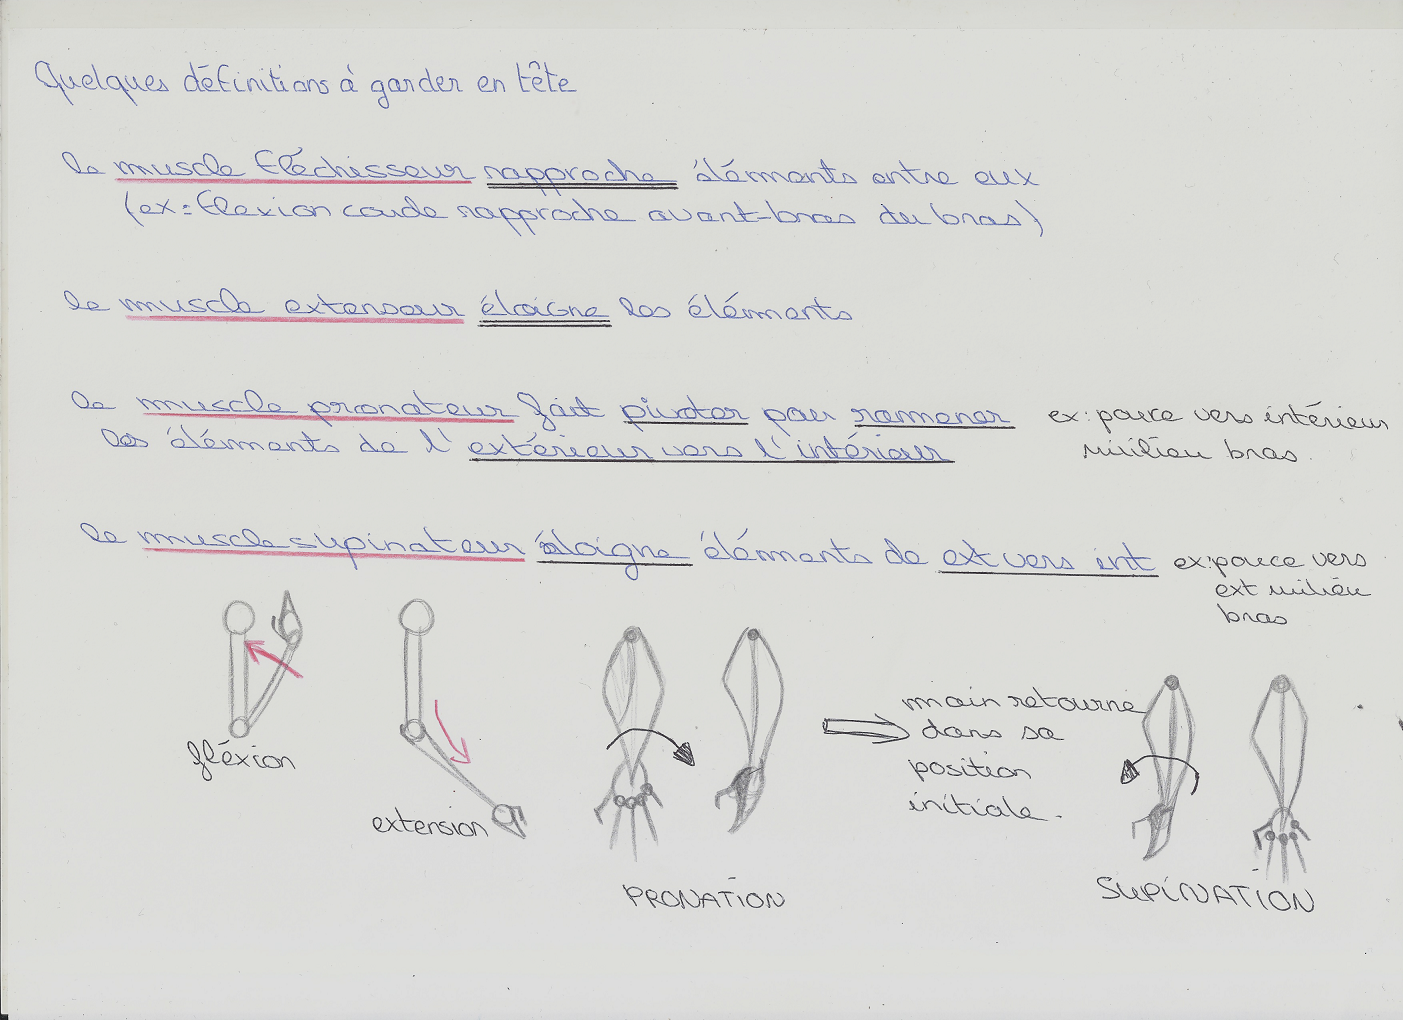 Quelques définitions à garder en tête
le muscle fléchisseur rapproche éléments entre eux
(ex: flexion coude rapproche avant-bras du bras)
le muscle extenseur éloigne les éléments
le muscle pronateur fait pivoter pour ramener
les éléments de l'extérieur vers l'intérieur
ex: pouce vers intérieur
milieu bras.
le muscle supinateur éloigne éléments de ext vers int
ex: pouce vers
ext milieu
bras
fléxion
extension
PRONATION
main retourne
dans sa
position
initiale.
SUPINATION